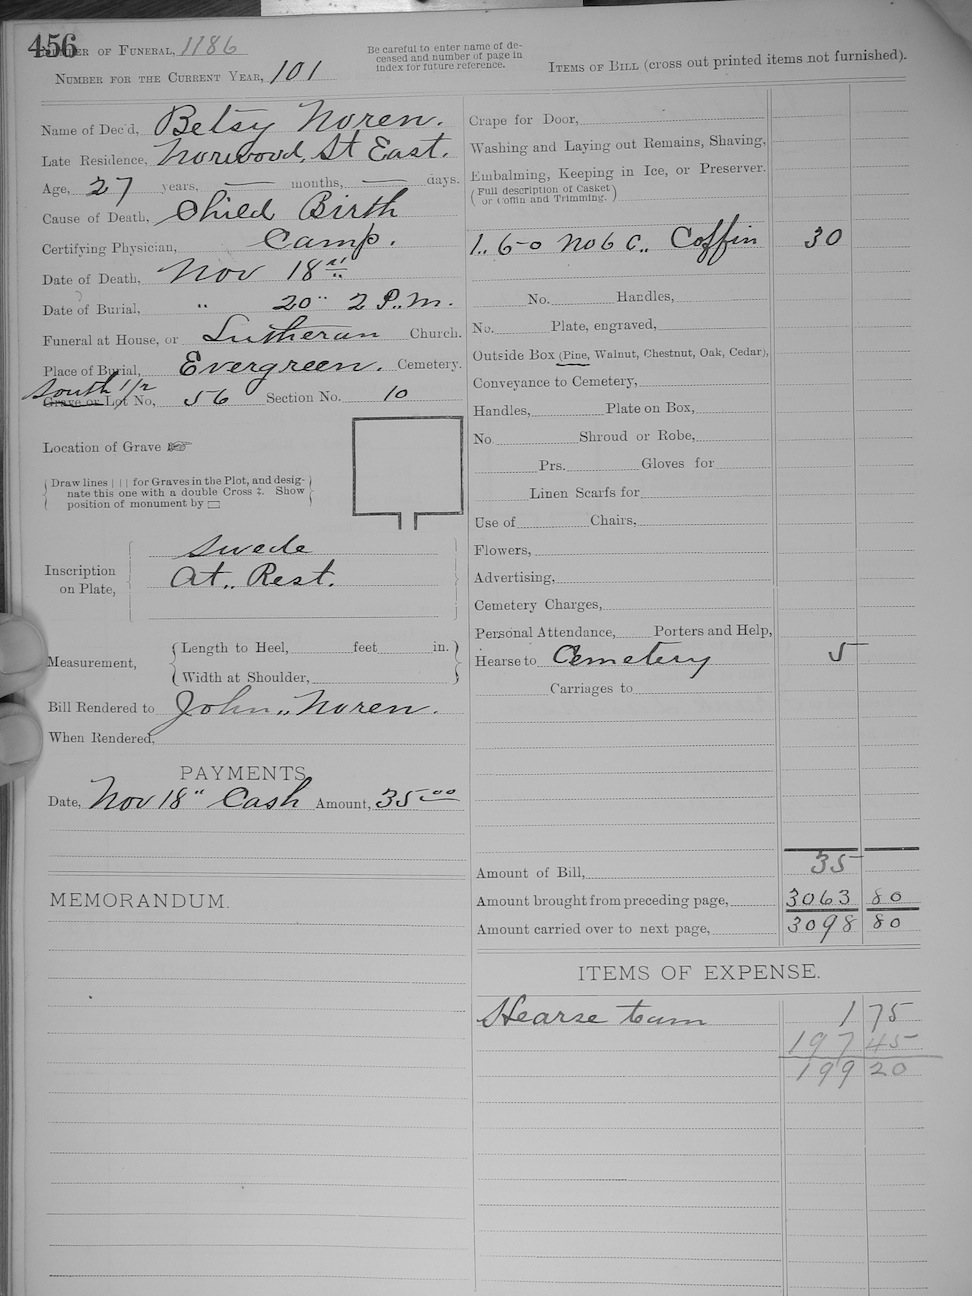 456
Number of Funeral, 1186
Number for the Current Year, 101
Be careful to enter name of de-
ceased and number of page in
index for future reference.
Items of Bill (cross out printed items not furnished).
Name of Dec'd, Betsy Noren.
Late Residence, Norwood, St East.
Age, 27 years, — months, — days.
Cause of Death, Child Birth
Certifying Physician, Camp.
Date of Death, Nov 18"
Date of Burial, " 20" 2 P.. M.
Funeral at House, or Lutheran Church.
Place of Burial, Evergreen. Cemetery.
South 1/2
Grave or Lot No, 56 Section No. 10
Location of Grave ☞
Draw lines | | | for Graves in the Plot, and desig-
nate this one with a double Cross ‡. Show
position of monument by ▭
Inscription
on Plate,
Swede
At.. Rest.
Measurement,
Length to Heel, feet in.
Width at Shoulder,
Bill Rendered to John.. Noren.
When Rendered,
PAYMENTS
Date, Nov 18" Cash Amount, 35 00
MEMORANDUM.
Crape for Door,
Washing and Laying out Remains, Shaving,
Embalming, Keeping in Ice, or Preserver.
(Full description of Casket
or Coffin and Trimming.)
1.. 6-0 No 6 C.. Coffin 30
No. Handles,
No. Plate, engraved,
Outside Box (Pine, Walnut, Chestnut, Oak, Cedar),
Conveyance to Cemetery,
Handles, Plate on Box,
No. Shroud or Robe,
Prs. Gloves for
Linen Scarfs for
Use of Chairs,
Flowers,
Advertising,
Cemetery Charges,
Personal Attendance, Porters and Help,
Hearse to Cemetery 5
Carriages to
Amount of Bill, 35
Amount brought from preceding page, 3063 80
Amount carried over to next page, 3098 80
ITEMS OF EXPENSE.
Hearse team 1 75
197 45
199 20